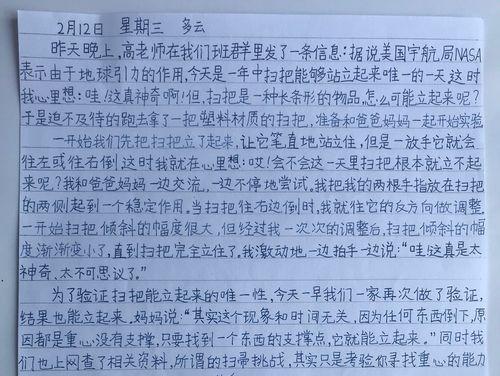 2月12日 星期三 多云
昨天晚上,高老师在我们班群里发了一条信息:据说美国宇航局NASA
表示由于地球引力的作用,今天是一年中扫把能够站立起来唯一的一天这时
我心里想:哇!这真神奇啊!但,扫把是一种长条形的物品,怎么可能立起来呢?
于是迫不及待的跑去拿了一把塑料材质的扫把,准备和爸爸妈妈一起开始实验
一开始我们先把扫把立了起来,让它笔直地站立住,但是一放手它就会
往左或往右倒,这时我就在心里想:哎!会不会这一天里扫把根本就立不起
来呢?我和爸爸妈妈一边交流,一边不停地尝试。我把我的两根手指放在扫把
的两侧起到一个稳定作用。当扫把往右边倒时,我就往它的反方向做调整
一开始扫把倾斜的幅度很大,但经过我一次次的调整后,扫把倾斜的幅
度渐渐变小了,直到扫把完全立住了,我激动地一边拍手一边说:“哇!这真是太
神奇、太不可思议了。”
为了验证扫把能立起来的唯一性,今天一早我们一家再次做了验证,
结果也能立起来。妈妈说:“其实这个现象和时间无关,因为任何东西倒下,原
因都是重心没有支撑,只要找到一个东西的支撑点,它就能立起来。”同时我
们也上网查了相关资料,所谓的扫帚挑战,其实只是考验你寻找重心的能力